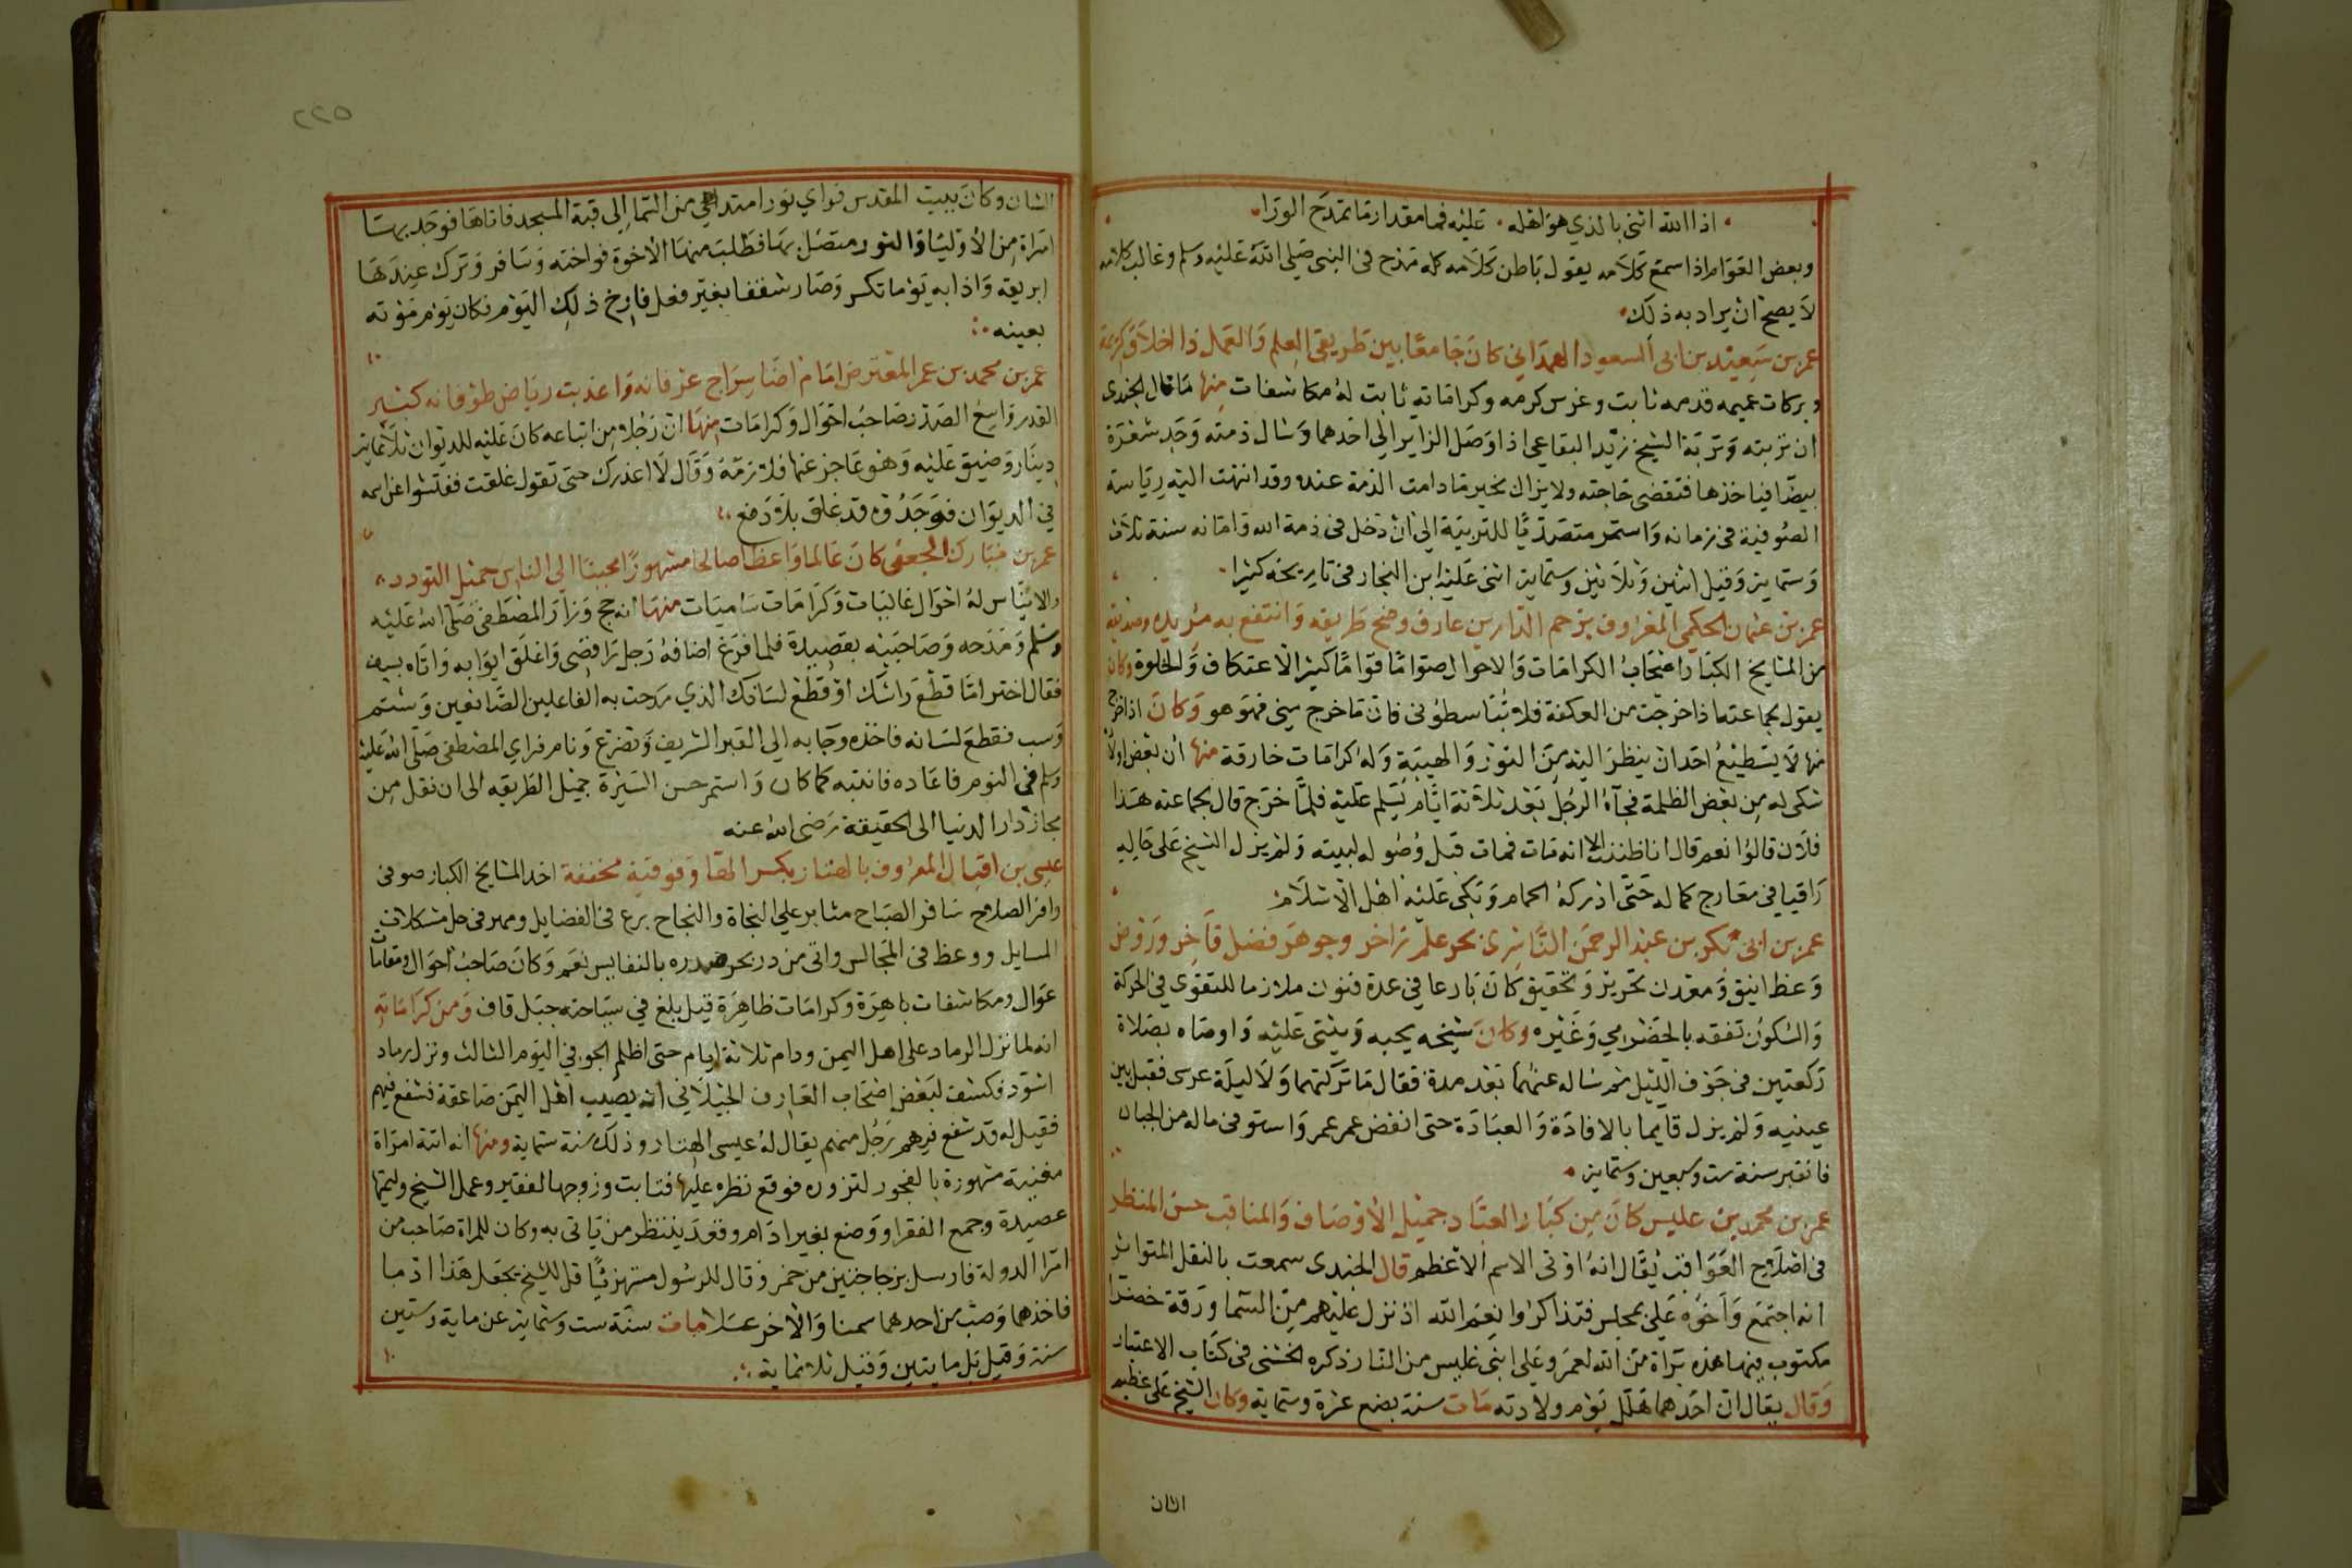 اذا الله اثنى بالذي هو اهله . عليه فما مقدار ما تمدح الورا
وبعض القوم اذا سمع كلامه يقول باطن كلامه كله مدح في النبي صلى الله عليه وسلم وغالب كلامه
لا يصح ان يراد به ذلك
عمر بن سعيد بن ابي السعود الهمداني كان جامعا بين طريقي العلم والعمل ذا اخلاق كريمة
وبركات عميمه قدمه ثابت وغرس كرمه وكراماته ثابت له مكاشفات منها ما قال الجندي
ان تربته وتربة الشيخ زيد البقاعي اذا وصل الزاير الى احدهما وسال ذمته وجد شعرة
بيضا فياخذها فتقضى حاجته ولا يزال بخير ما دامت الذمة عنده وقد انتهت اليه رياسة
الصوفية في زمانه واستمر متصديا للتربية الى ان دخل في ذمة الله وامانه سنة ثلاث
وستماية وقيل اثنين وثلاثين وستماية اثنى عليه ابن النجار في تاريخه كثيرا
عمر بن عثمان الحكمي المعروف بزحم الدارين عارف وضح طريقه وانتفع به مريده وصديقه
من المشايخ الكبار اصحاب الكرامات والاحوال صواما قواما كثير الاعتكاف والخلوة وكان
يقول لجماعته اذا خرجت من العكفة فلا تباسطوني فان ما خرج مني فهو هو وكان اذا خرج
منها لا يستطيع احد ان ينظر اليه من النور والهيبة وله كرامات خارقة منها ان بعض اولا
شكى له من بعض الظلمة فجآه الرجل بعد ثلاثة ايام يسلم عليه فلما خرج قال لجماعته هذا
فلان قالوا نعم قال انا ظننت الا انه مات فمات قبل وصوله لبيته ولم يزل الشيخ على حاله
راقيا في معارج كماله حتى ادركه الحمام وبكى عليه اهل الاسلام
عمر بن ابي بكر بن عبد الرحمن الناشري بحر علم زاخر وجوهر فضل فاخر وروض
وعظ انيق ومعدن تحرير وتحقيق كان بارعا في عدة فنون ملازما للتقوى في الحركة
والسكون تفقه بالحضرمي وغيره وكان شيخه يحبه ويثني عليه واوصاه بصلاة
ركعتين في جوف الليل ثم ساله عنهما بعد مدة فقال ما تركتهما ولا ليلة عرسي فقبل بين
عينيه ولم يزل قايما بالافادة والعبادة حتى انقض عمر عمر واستوفى ماله من الجباں
فانقبر سنة ست وسبعين وستماية
عمر بن محمد بن عليس كان من كبار العباد جميل الاوصاف والمناقب حسن المنظر
في اصلاح العواقب يقال انه اوتي الاسم الاعظم قال الجندي سمعت بالنقل المتواتر
انه اجتمع واخوه علي بمجلس فتذاكروا نعم الله اذ نزل عليهم من السما ورقة خضرا
مكتوب فيها هذه براة من الله لعمر وعلي ابني عليس من النار ذكره الخشني في كتاب الاعتبار
وقال يقال ان احدهما هلل يوم ولادته مات سنة بضع عشرة وستماية وكان الشيخ على عظيم
الشان
٢٢٥
الشان وكان ببيت المقدس فراي نورا ممتدا من السما الى قبة المسجد فاتاها فوجد بها
امراة من الاوليا والنور متصل بها فطلب منها الاخوة فواخته وسافر وترك عندها
ابريقه واذا به يوما تكسر وصار شقفا بغير فعل فارخ ذلك اليوم فكان يوم موته
بعينه
عمر بن محمد بن عمر المعترض امام اضا سراج عرفانه واعذبت رياض طوفانه كبير
القدر واسع الصدر صاحب احوال وكرامات منها ان رجلا من اتباعه كان عليه للديوان ثلاثماية
دينار وضيق عليه وهو عاجز عنها فلازمه وقال لا اعذرك حتى تقول غلقت ففتشوا عن اسمه
في الديوان فوجدوه قد غلق بلا دفع
عمر بن مبارك الجعفي كان عالما واعظا صالحا مشهورا محببا الى الناس جميل التودد
والايناس له احوال غاليات وكرامات ساميات منها انه حج وزار المصطفى صلى الله عليه
وسلم ومدحه وصاحبيه بقصيدة فلما فرغ اضافه رجل رافضي واغلق ابوابه واتاه بسيف
فقال اختر اما قطع راسك او قطع لسانك الذي مدحت به الفاعلين الصانعين وشتم
وسب فقطع لسانه فاخذه وجا به الى القبر الشريف وتضرع ونام فراي المصطفى صلى الله عليه
وسلم في النوم فاعاده فانتبه كما كان واستمر حسن السيرة جميل الطريقه الى ان نقل من
مجاز دار الدنيا الى الحقيقة رضي الله عنه
عيسى بن اقبال المعروف بالهتار بكسر الها وفوقية مخففة احد المشايخ الكبار صوفي
وافر الصلاح سافر الصباح مثابر على النجاة والنجاح برع في الفضايل ومهر في حل مشكلات
المسايل ووعظ في المجالس واتى من در بحر صدره بالنفايس نعم وكان صاحب احوال ومقامات
عوال ومكاشفات باهرة وكرامات ظاهرة قيل بلغ في سياحته جبل قاف ومن كراماته
انه لما نزل الرماد على اهل اليمن ودام ثلاثة ايام حتى اظلم الجو في اليوم الثالث ونزل رماد
اسود فكشف لبعض اصحاب العارف الجيلاني انه يصيب اهل اليمن صاعقة فشفع فيهم
فقيل له قد شفع فيهم رجل منهم يقال له عيسى الهتار وذلك سنة ستماية ومنها انه اتته امراة
مغنية مشهورة بالفجور لتزوره فوقع نظره عليها فتابت وزوجها لفقير وعمل الشيخ وليمتها
عصيدة وجمع الفقرا ووضع بغير ادام وقعد ينتظر من ياتي به وكان للمراة صاحب من
امرا الدولة فارسل بزجاجتين من خمر وقال للرسول مستهزئا قل للشيخ يجعل هذا ادما
فاخذهما وصب من احدهما سمنا والاخر عسلا مات سنة ست وستماية عن ماية وستين
سنة وقيل بل مايتين وقيل ثلاثماية